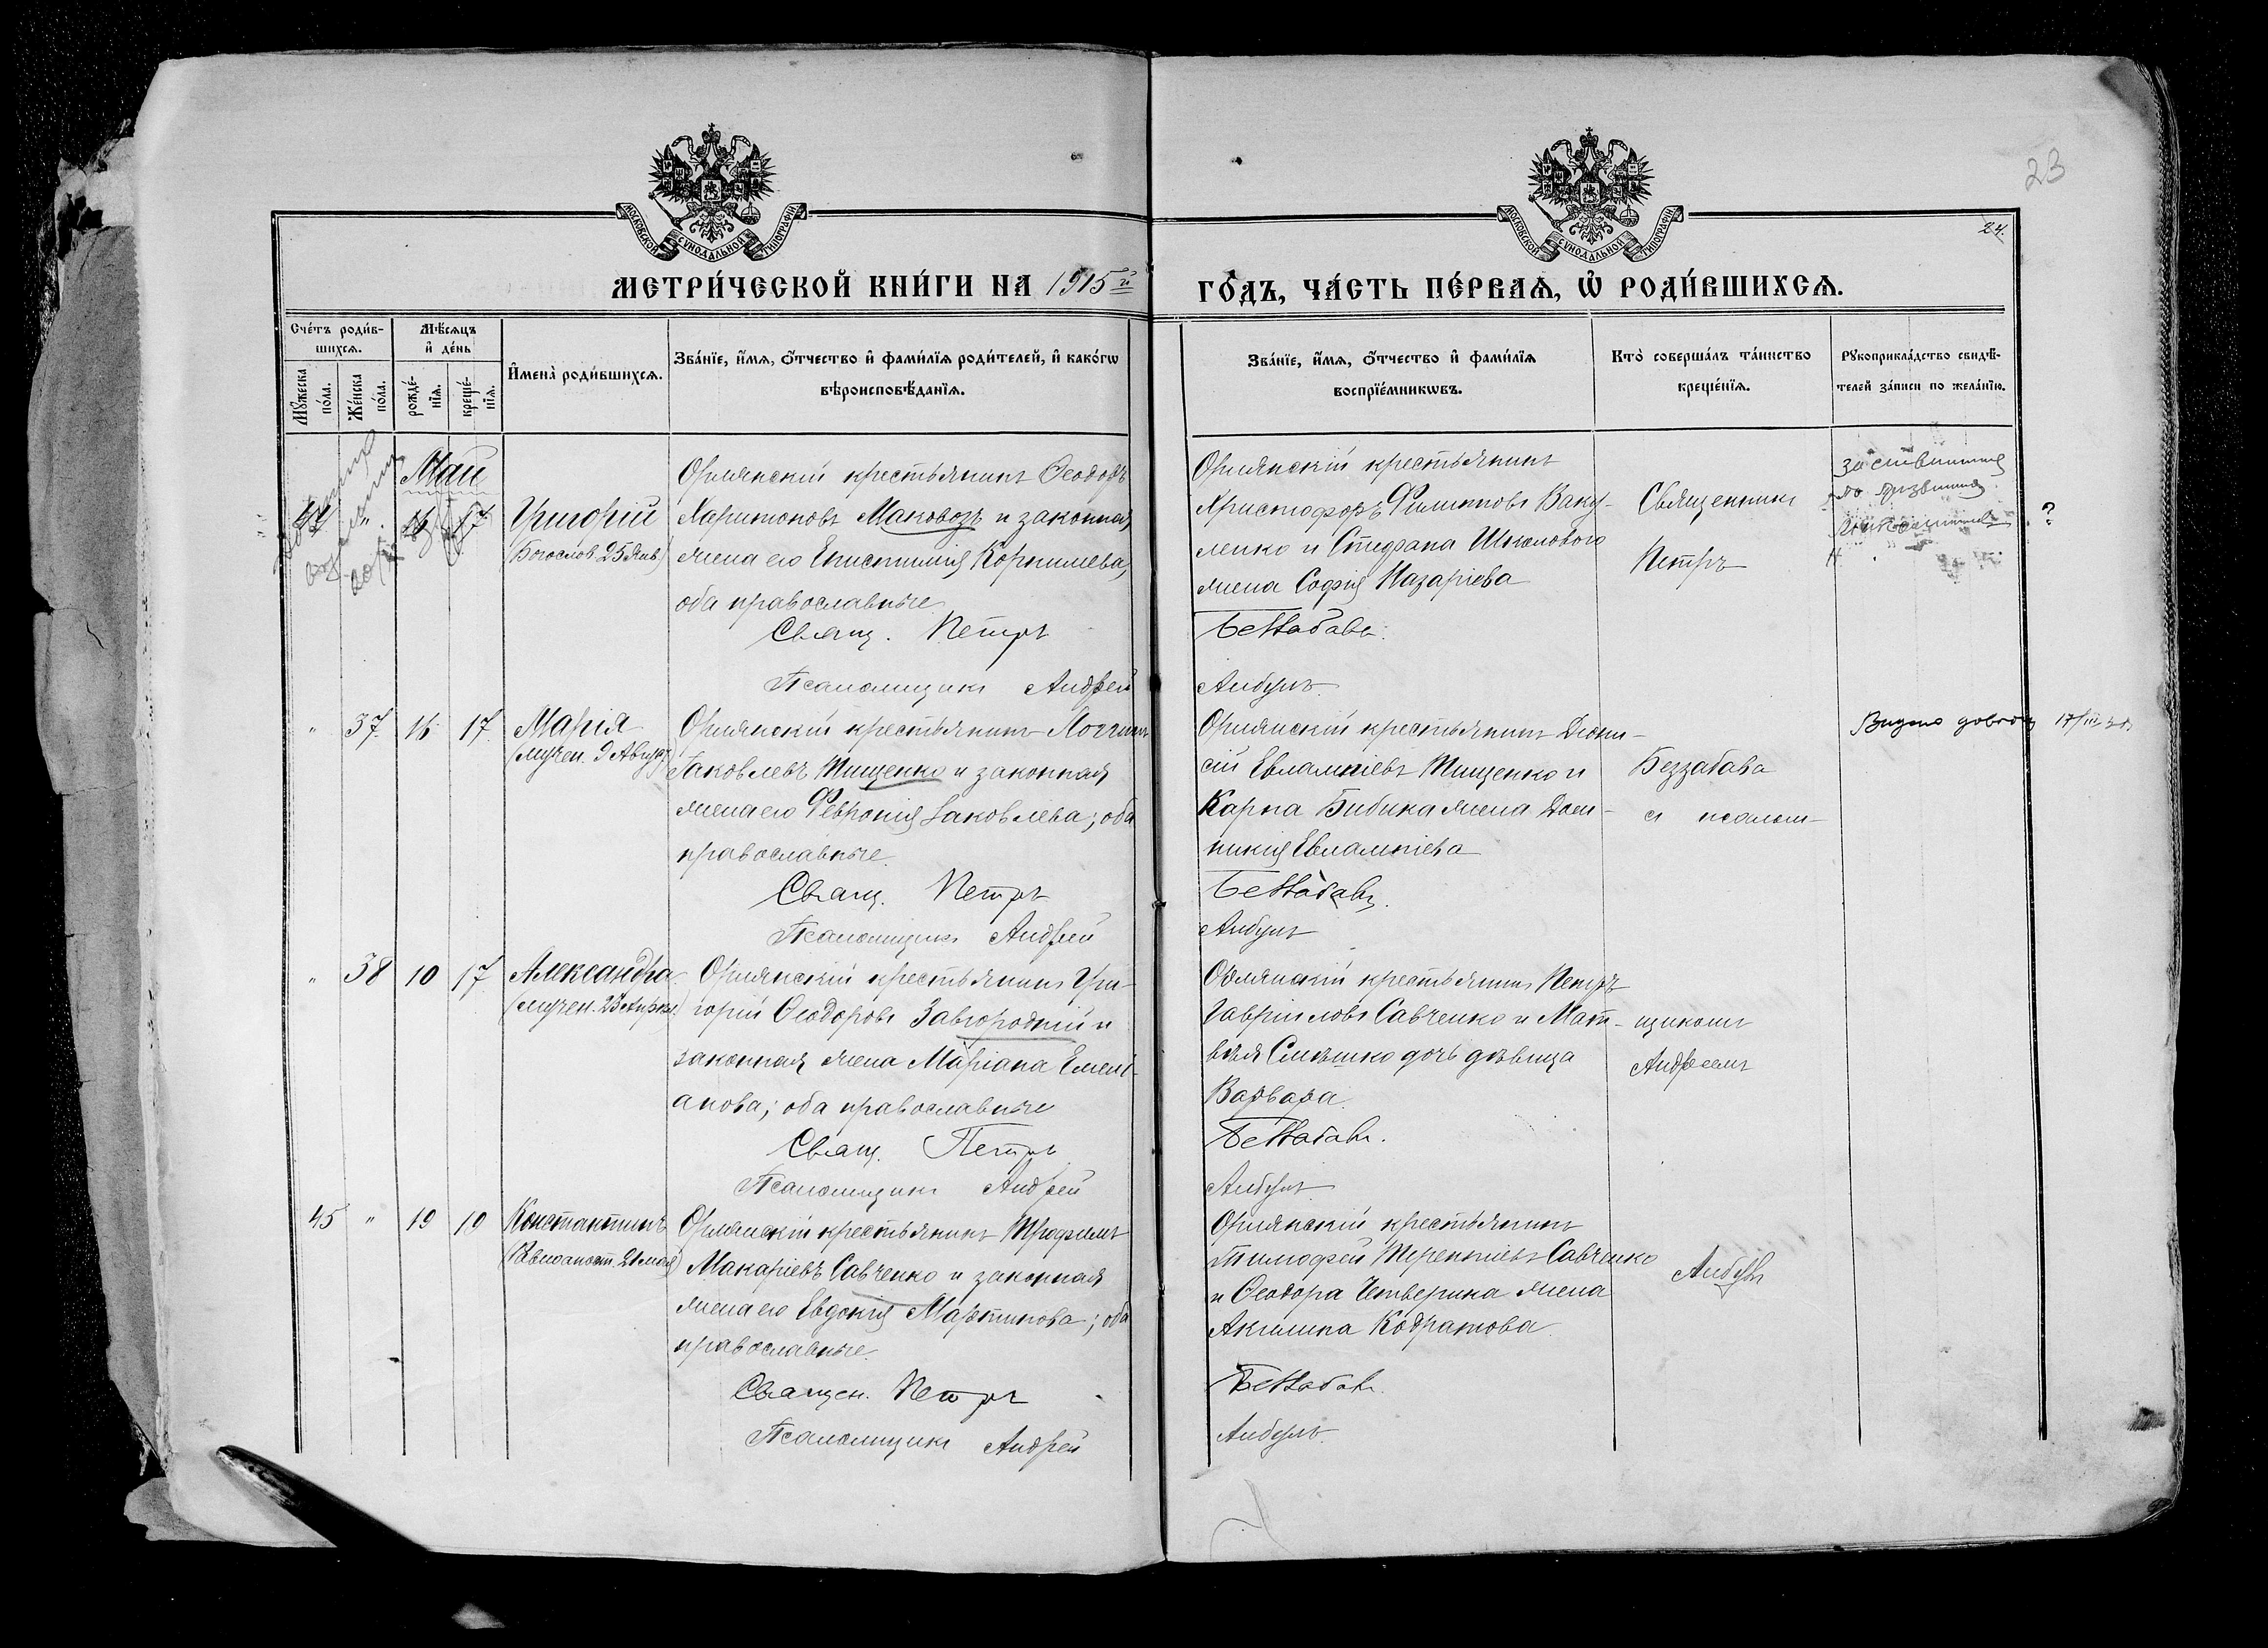 23
24.
МОСКОВСКОЙ СѴНОДАЛЬНОЙ ТИПОГРАФІИ
МОСКОВСКОЙ СѴНОДАЛЬНОЙ ТИПОГРАФІИ
МЕТРИ́ЧЕСКОЙ КНИ́ГИ НА 1915й ГО́ДЪ, ЧА́СТЬ ПЕ́РВАѦ, Ѡ҆ РОДИ́ВШИХСѦ.
Сче́тъ роди́в-
шихсѧ.
Мꙋ́жеска
по́ла.
Же́нска
по́ла.
Мѣ́сѧцъ
и҆ де́нь
рожде́-
нїѧ.
креще́-
нїѧ.
И҆мена̀ роди́вшихсѧ.
Зва́нїе, и҆́мѧ, ѻ҆́тчество и҆ фами́лїѧ роди́телей, и҆ како́гѡ
вѣроисповѣ́данїѧ.
Зва́нїе, и҆́мѧ, ѻ҆́тчество и҆ фами́лїѧ
воспрїе́мникѡвъ.
Кто̀ соверша́лъ та́инство
креще́нїѧ.
Рꙋкоприкла́дство свидѣ́-
телей за́писи по жела́нїю.
Май
44 " 16 17
Григорій
(Богослов. 25 Янв)
Орлянскій крестьянинъ Ѳеодоръ
Харитоновъ Маковозъ и законная
жена его Епистимія Корнилиева,
оба православные.
Свящ. Петръ
Псаломщикъ Андрей
Орлянскій крестьянинъ
Христофоръ Филипповъ Ваку-
ленко и Стефана Школового
жена Софія Назаріева
Беззабава.
Анбулъ.
Священникъ
Петръ
?
" 37. 16 17.
Марія
(мучен. 9 Август)
Орлянскій крестьянинъ Логгинъ
Іаковлевъ Тищенко и законная
жена его Февронія Іаковлева; оба
православные.
Свящ. Петръ
Псаломщикъ Андрей
Орлянскій крестьянинъ Діони-
сій Евлампіевъ Тищенко и
Карпа Бибика жена Дом-
никія Евлампіева
Беззабава.
Анбулъ
Беззабава
съ псалом-
" 38 10 17.
Александра
(мучен. 23 Апрѣл.)
Орлянскій крестьянинъ Гри-
горій Ѳеодоровъ Завгородній и
законная жена Маріана Емелі-
анова; оба православные
Свящ. Петръ
Псаломщикъ Андрей
Орлянскій крестьянинъ Петръ
Гавріиловъ Савченко и Мат-
вѣя Смѣшко дочь дѣвица
Варвара.
Беззабава.
Анбулъ.
щикомъ
Андреемъ
45 " 19 19
Константинъ
(Равноапост. 21 мая)
Орлянскій крестьянинъ Трофимъ
Макаріевъ Савченко и законная
жена его Евдокія Мартинова; оба
православные.
Священ. Петръ
Псаломщикъ Андрей
Орлянскій крестьянинъ
Тимофей Терентіевъ Савченко
и Ѳеодора Четверика жена
Акилина Кодратова.
Беззабава.
Анбулъ.
Анбулъ